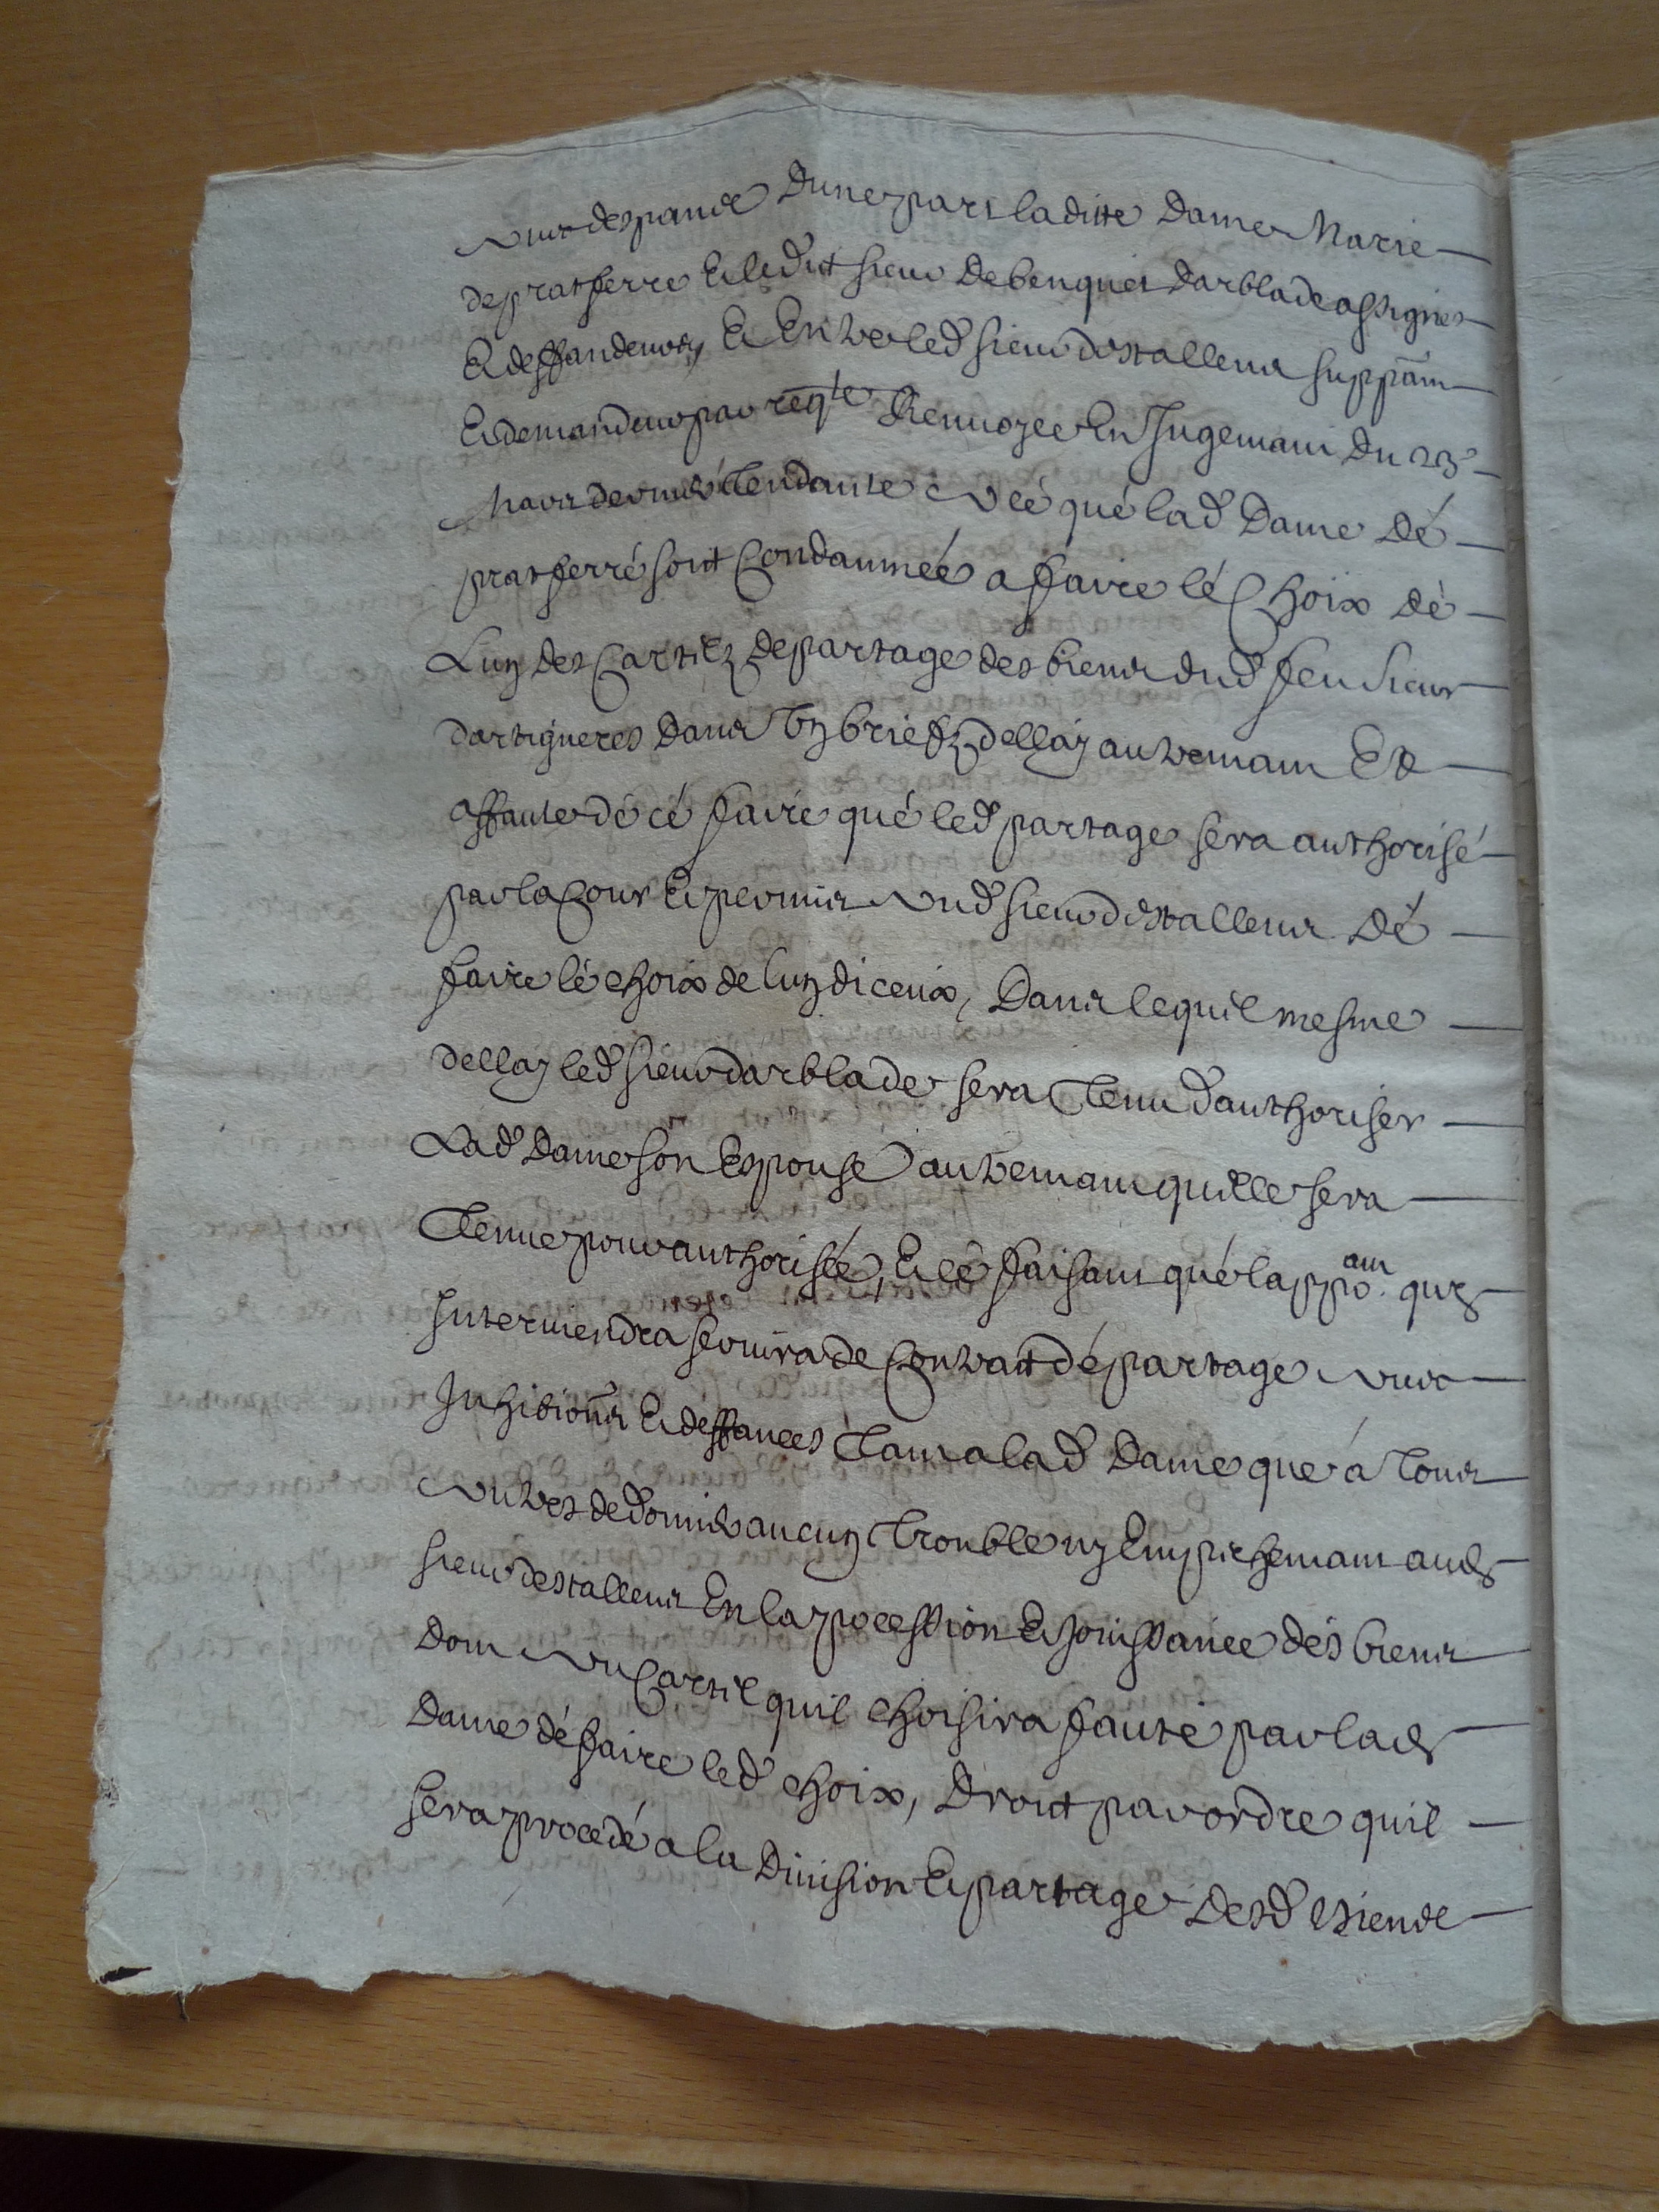 avec despance dune part laditte dame Marie
de pratferré et ledit sieur debenquet darblade assignes
et deffandeurs et entre led sieur destallens suppant
et demandeur par reqte renvoyee en jugemant du 23e
mars dernier tendante a ce qué lad dame dé
pratferré soit condamnéé a faire lé choix dé
Lun des cartiels de partage des biens dud feu sieur
dartigueres dans un brief dellay autremant et
affaute dé cé fairé qué led partage séra authorisé
par la cour et permis aud sieur destallens dé
faire lé choix de lun diceux, dans lequel mesme
dellay led sieur darblade sera tenu dauthoriser
Lad dame son espouse autremant quelle sera
tenue pour authorisée, et cé faisant qué lappoant quy
interviendra servira de contrat dé partage avec
inhibions et deffances tant a lad dame qué a tous
autres de donner aucun trouble ny empechemant aud
sieur destallens en la pocession et jouissance dés biens
dont au cartel quil choisira fauté par lad
dame dé faire led choix, droit par ordre quil
sera procédé a la division et partage desd